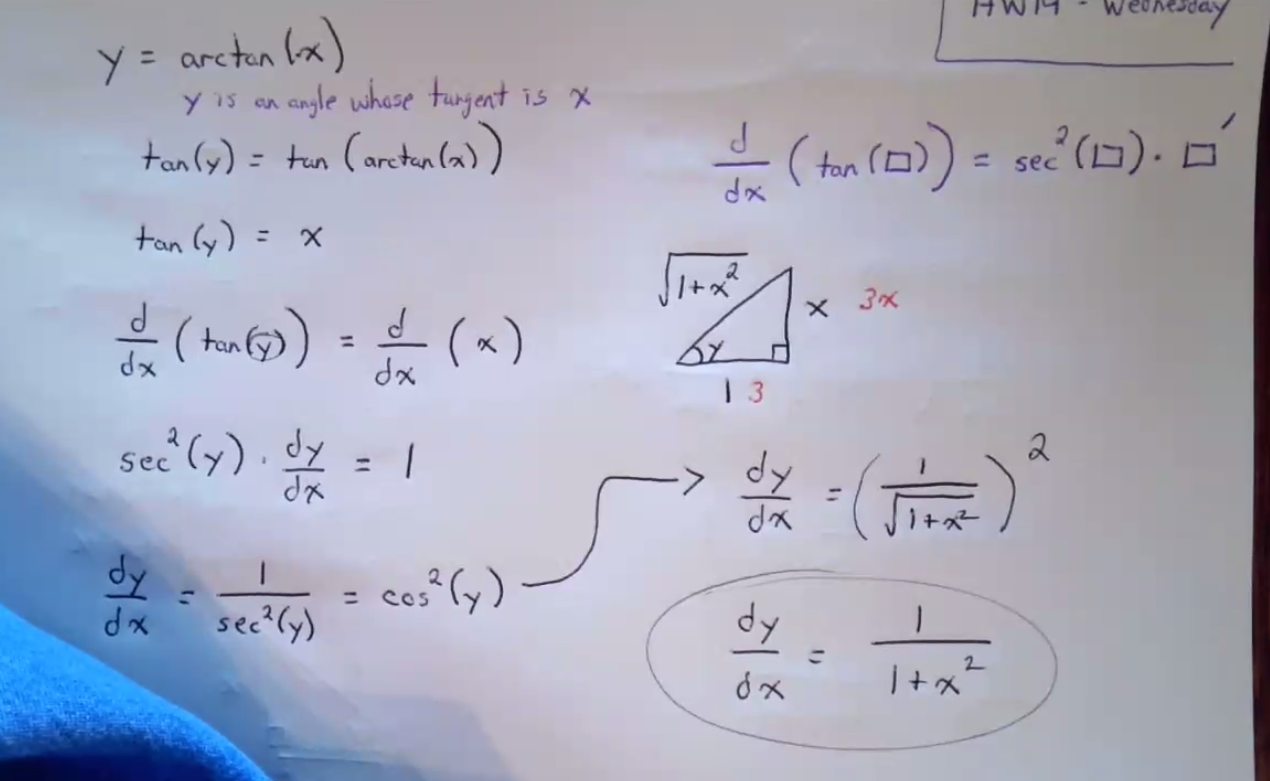 HW14 - Wednesday
y = arctan(x)
y is an angle whose tangent is x
tan(y) = tan(arctan(x))
tan(y) = x
d/dx (tan(y)) = d/dx (x)
sec²(y) · dy/dx = 1
dy/dx = 1/sec²(y) = cos²(y) →
d/dx (tan(□)) = sec²(□) · □′
√(1+x²)
x 3x
y
1 3
dy/dx = (1/√(1+x²))²
dy/dx = 1/(1+x²)